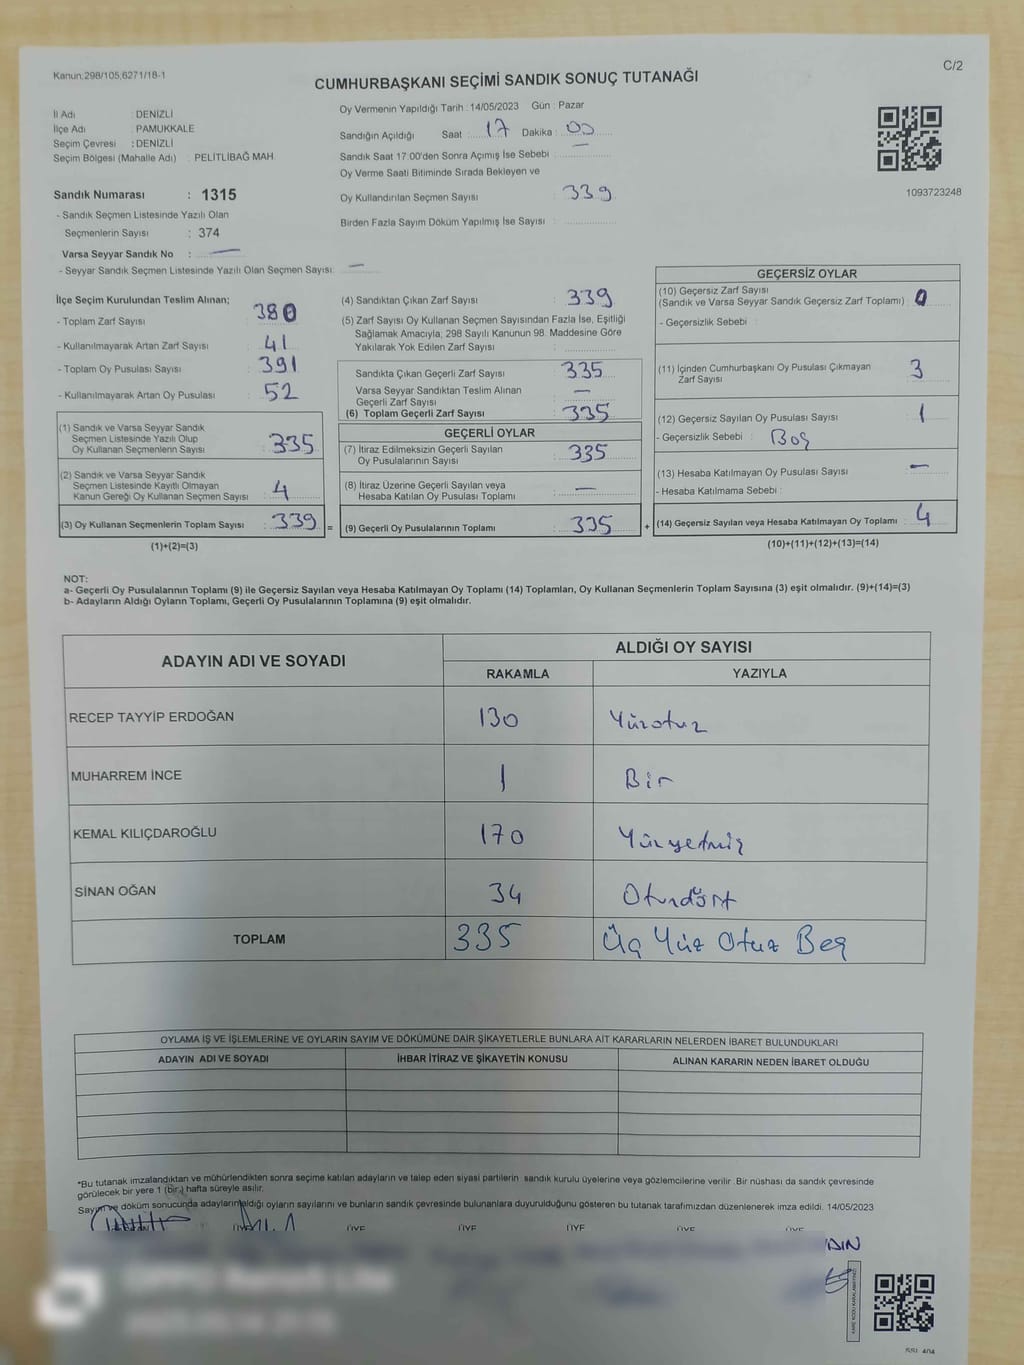 Kanun:298/105,6271/18-1
C/2
CUMHURBAŞKANI SEÇİMİ SANDIK SONUÇ TUTANAĞI
İl Adı : DENİZLİ
İlçe Adı : PAMUKKALE
Seçim Çevresi : DENİZLİ
Seçim Bölgesi (Mahalle Adı) : PELİTLİBAĞ MAH.
Sandık Numarası : 1315
- Sandık Seçmen Listesinde Yazılı Olan
Seçmenlerin Sayısı : 374
Varsa Seyyar Sandık No : —
- Seyyar Sandık Seçmen Listesinde Yazılı Olan Seçmen Sayısı: —
Oy Vermenin Yapıldığı Tarih : 14/05/2023 Gün : Pazar
Sandığın Açıldığı Saat : 17 Dakika : 00
Sandık Saat 17:00'den Sonra Açımış İse Sebebi : —
Oy Verme Saati Bitiminde Sırada Bekleyen ve
Oy Kullandırılan Seçmen Sayısı : 339
Birden Fazla Sayım Döküm Yapılmış İse Sayısı :
1093723248
İlçe Seçim Kurulundan Teslim Alınan;
- Toplam Zarf Sayısı : 380
- Kullanılmayarak Artan Zarf Sayısı : 41
- Toplam Oy Pusulası Sayısı : 391
- Kullanılmayarak Artan Oy Pusulası : 52
(1) Sandık ve Varsa Seyyar Sandık
Seçmen Listesinde Yazılı Olup
Oy Kullanan Seçmenlerin Sayısı : 335
(2) Sandık ve Varsa Seyyar Sandık
Seçmen Listesinde Kayıtlı Olmayan
Kanun Gereği Oy Kullanan Seçmen Sayısı : 4
(3) Oy Kullanan Seçmenlerin Toplam Sayısı : 339 =
(1)+(2)=(3)
(4) Sandıktan Çıkan Zarf Sayısı : 339
(5) Zarf Sayısı Oy Kullanan Seçmen Sayısından Fazla İse, Eşitliği
Sağlamak Amacıyla; 298 Sayılı Kanunun 98. Maddesine Göre
Yakılarak Yok Edilen Zarf Sayısı :
Sandıkta Çıkan Geçerli Zarf Sayısı : 335
Varsa Seyyar Sandıktan Teslim Alınan
Geçerli Zarf Sayısı : —
(6) Toplam Geçerli Zarf Sayısı : 335
GEÇERLİ OYLAR
(7) İtiraz Edilmeksizin Geçerli Sayılan
Oy Pusulalarının Sayısı : 335
(8) İtiraz Üzerine Geçerli Sayılan veya
Hesaba Katılan Oy Pusulası Toplamı : —
(9) Geçerli Oy Pusulalarının Toplamı : 335 +
GEÇERSİZ OYLAR
(10) Geçersiz Zarf Sayısı
(Sandık ve Varsa Seyyar Sandık Geçersiz Zarf Toplamı) : 0
- Geçersizlik Sebebi :
(11) İçinden Cumhurbaşkanı Oy Pusulası Çıkmayan
Zarf Sayısı : 3
(12) Geçersiz Sayılan Oy Pusulası Sayısı : 1
- Geçersizlik Sebebi : Boş
(13) Hesaba Katılmayan Oy Pusulası Sayısı : —
- Hesaba Katılmama Sebebi :
(14) Geçersiz Sayılan veya Hesaba Katılmayan Oy Toplamı : 4
(10)+(11)+(12)+(13)=(14)
NOT:
a- Geçerli Oy Pusulalarının Toplamı (9) ile Geçersiz Sayılan veya Hesaba Katılmayan Oy Toplamı (14) Toplamları, Oy Kullanan Seçmenlerin Toplam Sayısına (3) eşit olmalıdır. (9)+(14)=(3)
b- Adayların Aldığı Oyların Toplamı, Geçerli Oy Pusulalarının Toplamına (9) eşit olmalıdır.
ADAYIN ADI VE SOYADI
ALDIĞI OY SAYISI
RAKAMLA YAZIYLA
RECEP TAYYİP ERDOĞAN 130 Yüzotuz
MUHARREM İNCE 1 Bir
KEMAL KILIÇDAROĞLU 170 Yüzyetmiş
SİNAN OĞAN 34 Otuzdört
TOPLAM 335 Üç Yüz Otuz Beş
OYLAMA İŞ VE İŞLEMLERİNE VE OYLARIN SAYIM VE DÖKÜMÜNE DAİR ŞİKAYETLERLE BUNLARA AİT KARARLARIN NELERDEN İBARET BULUNDUKLARI
ADAYIN ADI VE SOYADI İHBAR İTİRAZ VE ŞİKAYETİN KONUSU ALINAN KARARIN NEDEN İBARET OLDUĞU
*Bu tutanak imzalandıktan ve mühürlendikten sonra seçime katılan adayların ve talep eden siyasi partilerin sandık kurulu üyelerine veya gözlemcilerine verilir .Bir nüshası da sandık çevresinde
görülecek bir yere 1 (bir) hafta süreyle asılır.
Sayım ve döküm sonucunda adayların aldığı oyların sayılarını ve bunların sandık çevresinde bulunanlara duyurulduğunu gösteren bu tutanak tarafımızdan düzenlenerek imza edildi. 14/05/2023
ÜYE ÜYE ÜYE ÜYE ÜYE